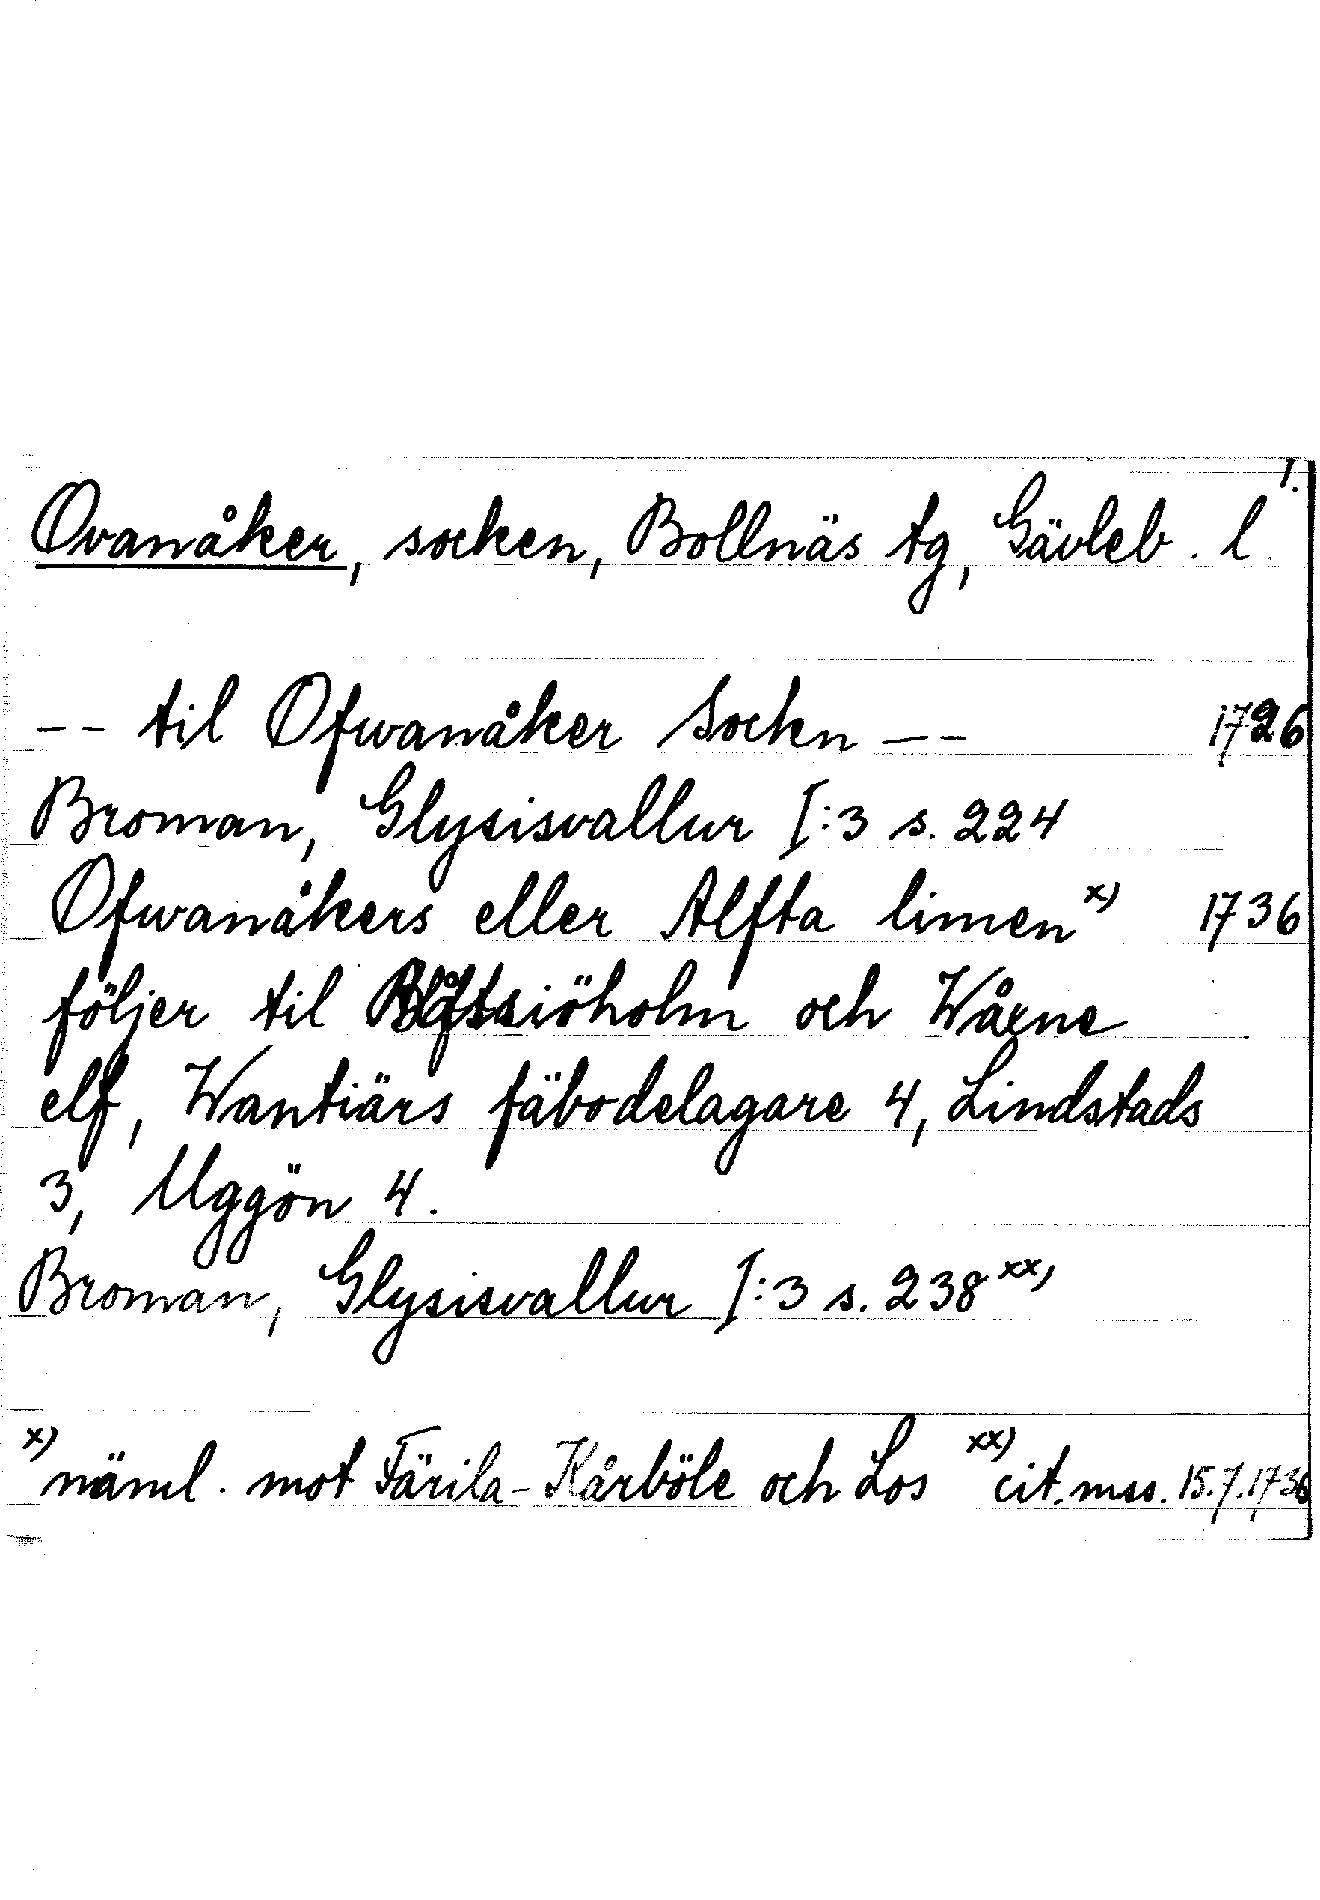 1.
Ovanåker, socken, Bollnäs tg, Gävleb. l.
-- til Ofwanåker Sockn -- 1726
Broman, Glysisvallur I:3 s. 224
Ofwanåkers eller Alfta limen x) 1736
följer til och Wårne
elf, Wantiärs fäbodelagare 4, Lindstads
3, Uggön 4.
Broman, Glysisvallur I:3 s. 238 xx)
x) näml. mot Färila-Kårböle och Los xx) cit. mss. 15.7.1736